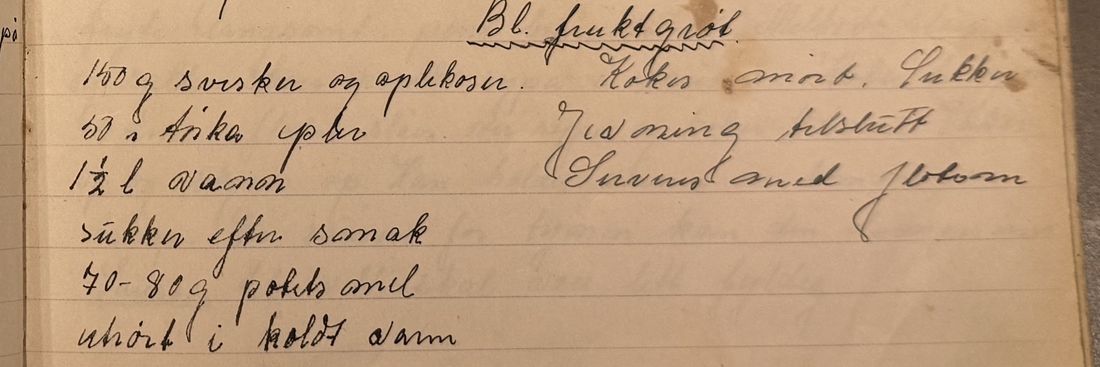 på
Bl. fruktgrøt.
150 g svisker og aplekoser.
50 " tørka epler
1½ l vann
sukker efter smak
70-80 g potetsmel
utrørt i koldt vann
Kokes mørt. Sukker
Jevning tilslutt
Serveres med fløtem